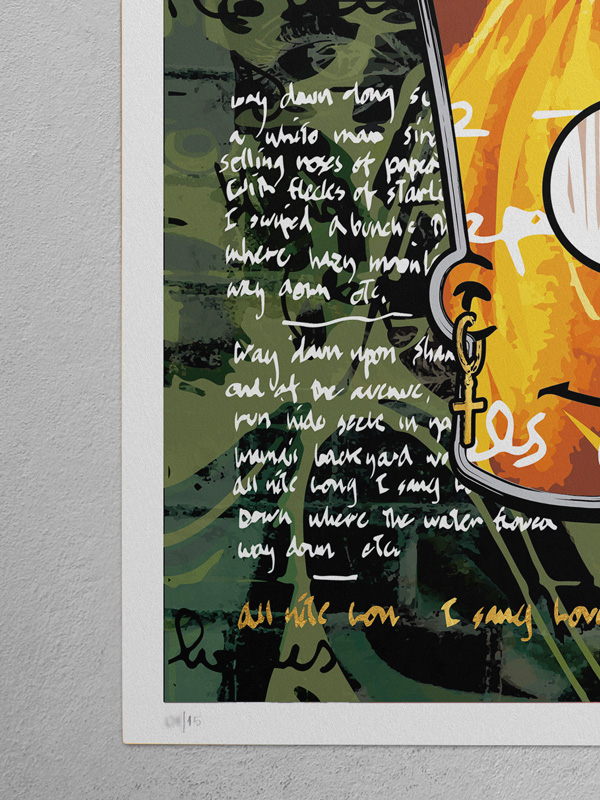 way down along s
a white man sin
selling roses of paper
With flecks of starli
I swiped a bunch
where hazy moonl
way down etc.
Way down upon shan
and at the avenue,
run hide seek in
mama's backyard
all nite long I sang
Down where the water
way down etc
all nite lon I sang
les
/15